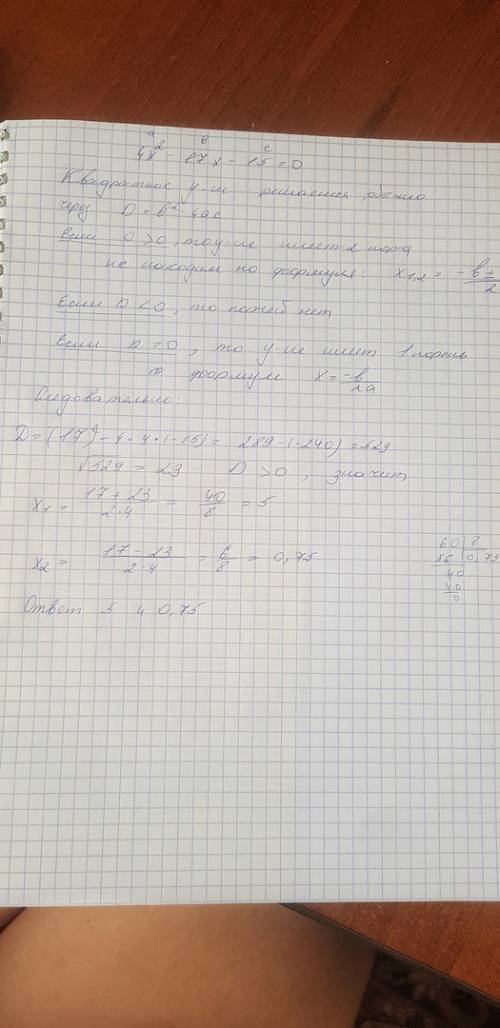 a в c
4x² - 17x - 15 = 0
Квадратное ур-ие решается обычно
через D = в² - 4ac
Если D > 0, то ур-ие имеет 2 корня
их находим по формуле: x1,2 = -в ± / 2
Если D < 0, то корней нет
Если D = 0, то ур-ие имеет 1 корень
по формуле x = -в/2a
Следовательно:
D = (17²) - 4 * 4 * (-15) = 289 - (-240) = 529
√529 = 23 D > 0, значит
x1 = 17 + 23 / 2·4 = 40/8 = 5
x2 = 17 - 23 / 2·4 = 6/8 = 0,75
60 8
56 0,75
40
40
0
Ответ 5 и 0,75